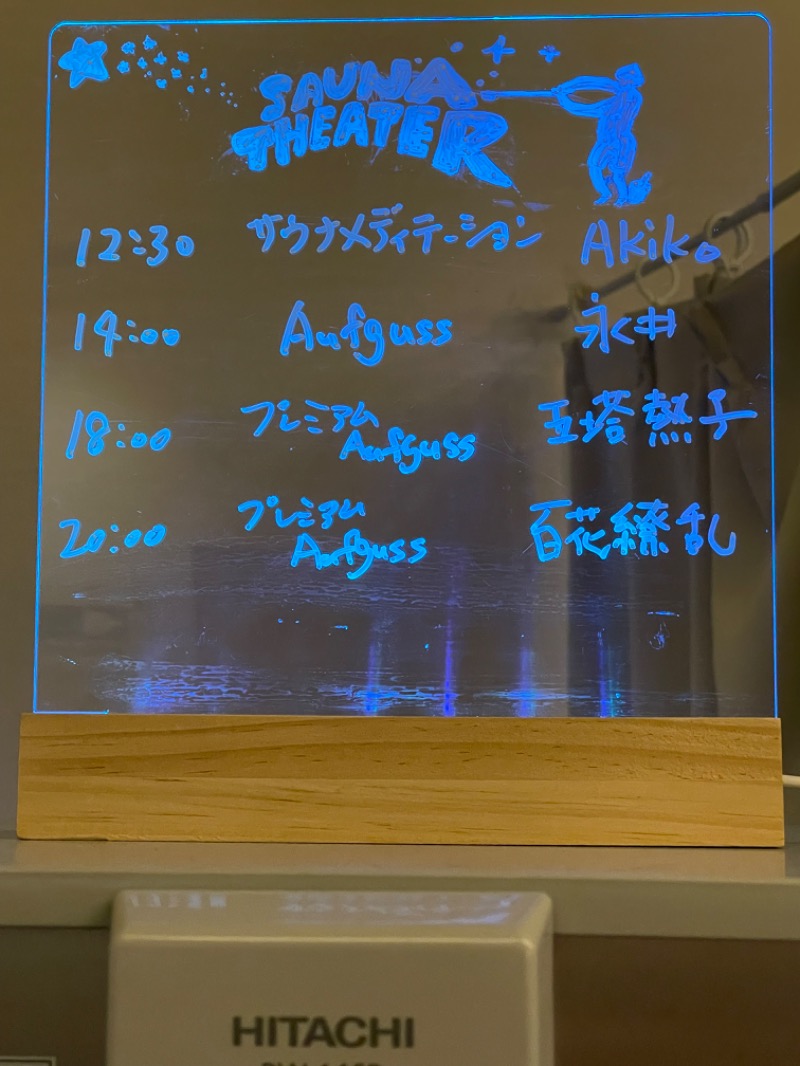 SAUNA
THEATER
12:30 サウナメディテーション Akiko
14:00 Aufguss 永井
18:00 プレミアム
Aufguss 五塔熱子
20:00 プレミアム
Aufguss 百花繚乱
HITACHI